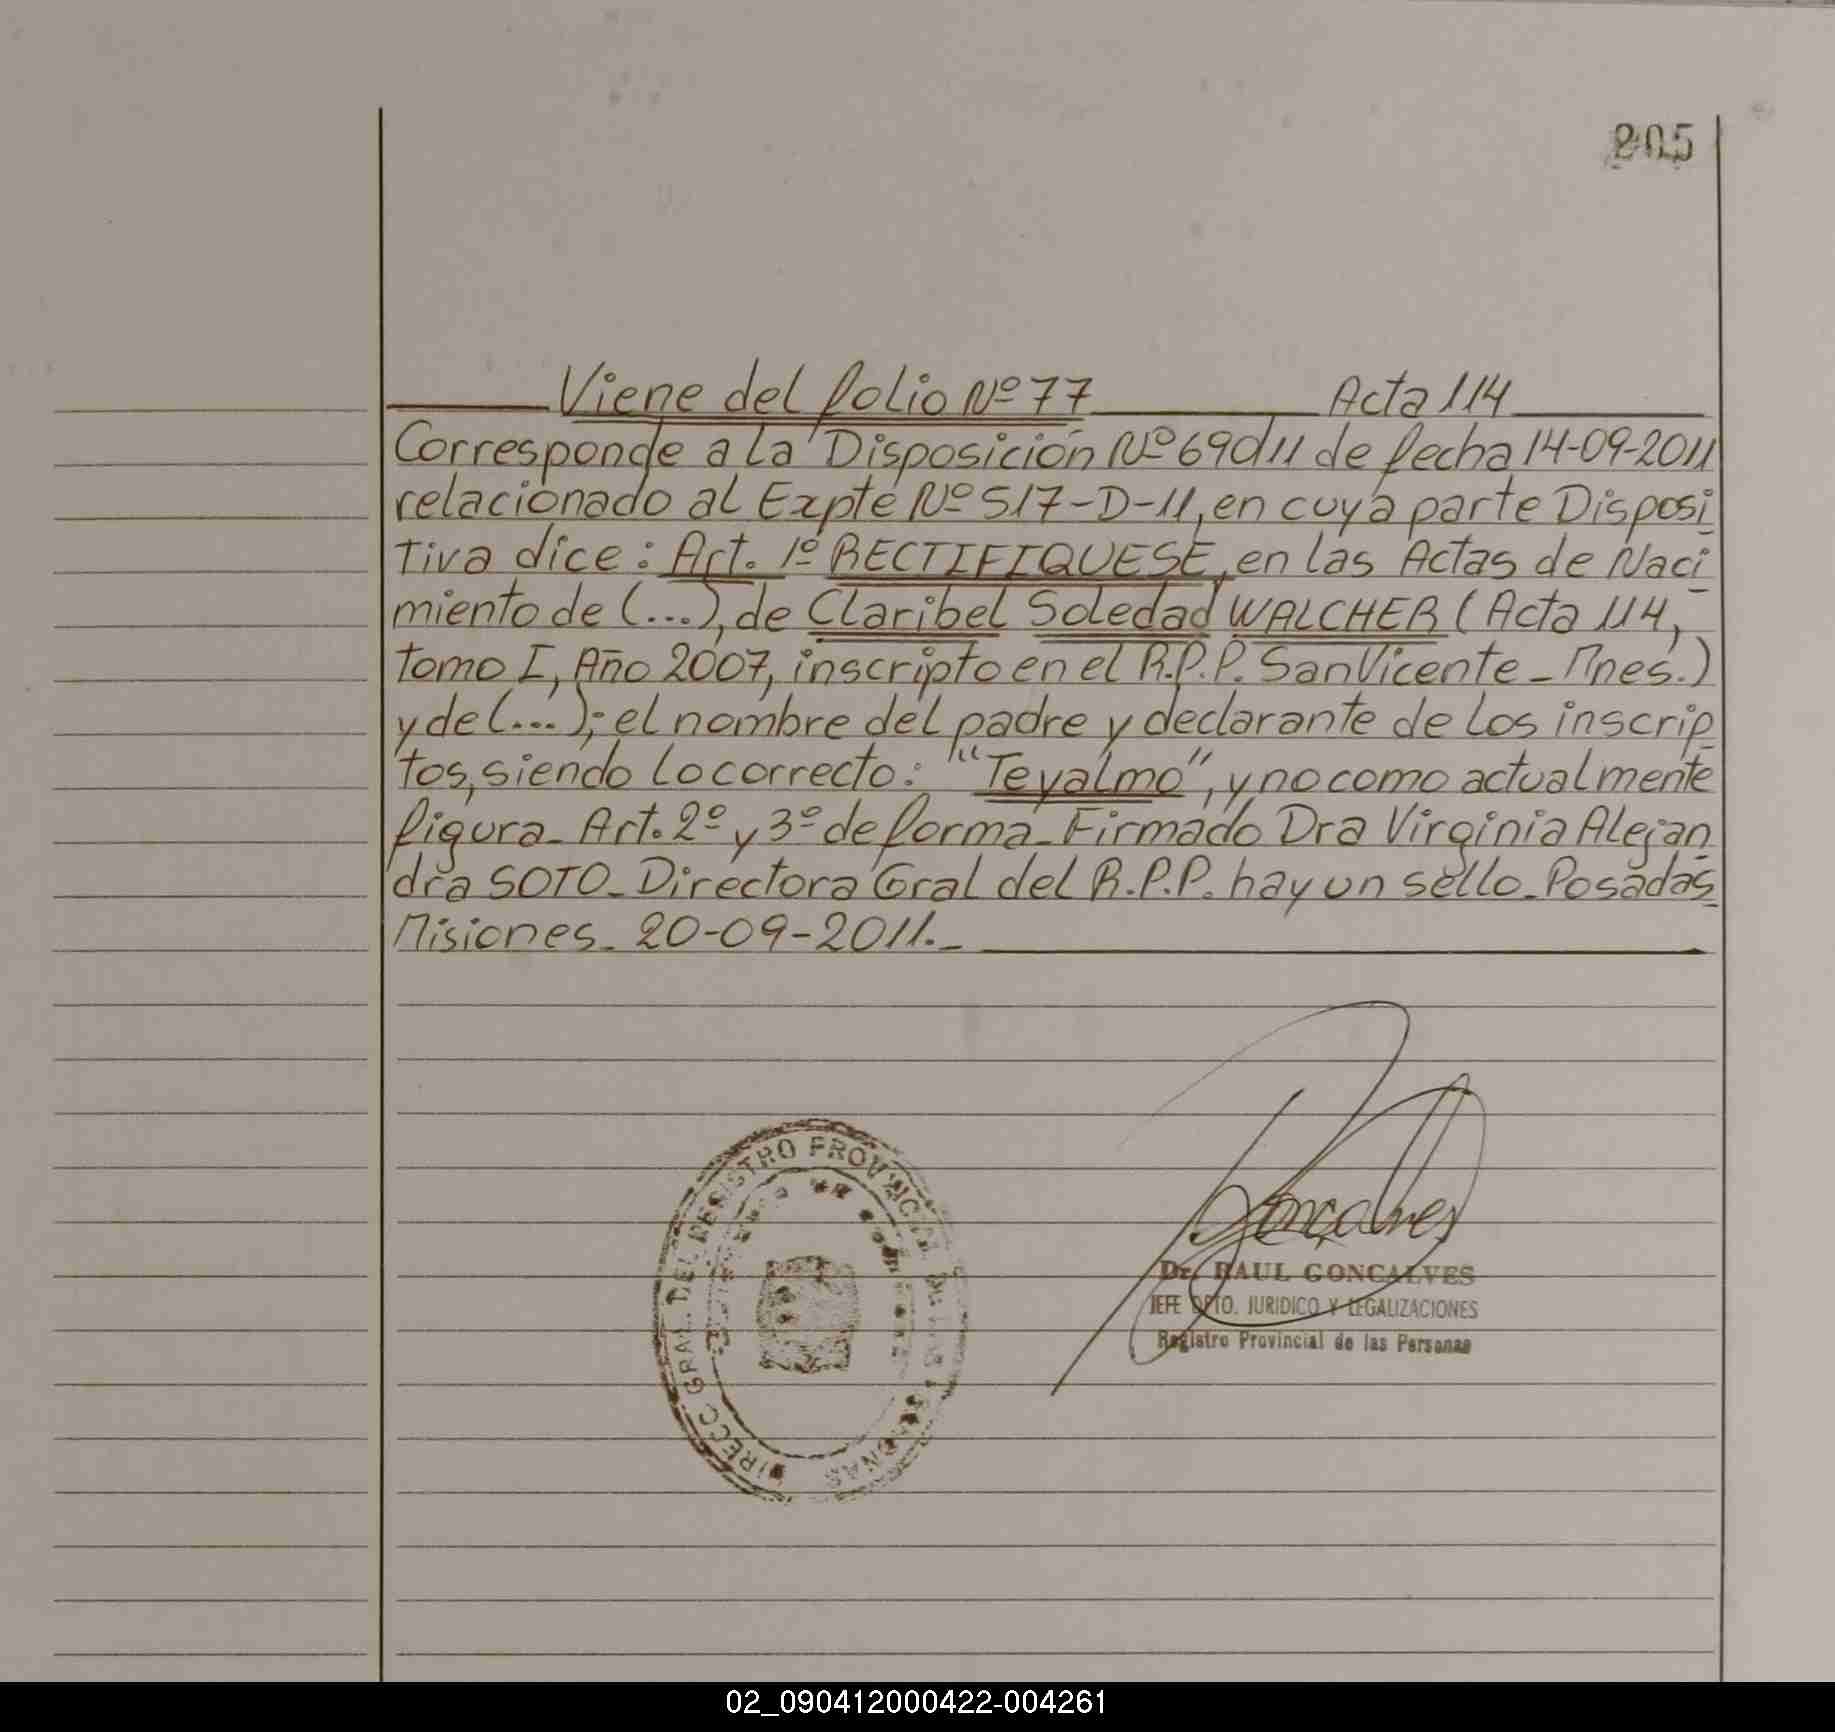 205
Viene del folio Nº 77 Acta 114
Corresponde a la Disposición Nº 690/11 de fecha 14-09-2011
relacionado al Expte Nº 517-D-11, en cuya parte Disposi
tiva dice: Art. 1º RECTIFIQUESE, en las Actas de Naci
miento de (...), de Claribel Soledad WALCHER (Acta 114,
tomo I, Año 2007, inscripto en el R.P.P. San Vicente - Mnes.)
y de (...); el nombre del padre y declarante de los inscrip
tos, siendo lo correcto: "Teyalmo", y no como actualmente
figura - Art. 2º y 3º de forma - Firmado Dra Virginia Alejan
dra SOTO - Directora Gral del R.P.P. hay un sello - Posadas
Misiones - 20-09-2011.-
DIRECC. GRAL. DEL REGISTRO PROVINCIAL DE LAS PERSONAS
Goncalves
Dr. RAUL GONCALVES
JEFE DPTO. JURIDICO Y LEGALIZACIONES
Registro Provincial de las Personas
02_090412000422-004261